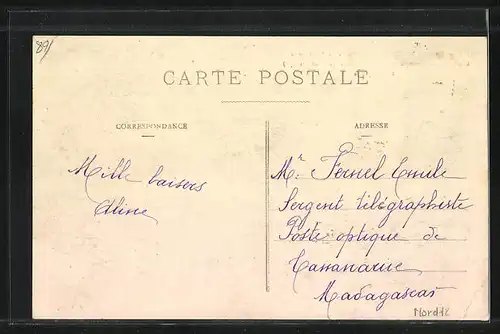 89/
CARTE POSTALE
CORRESPONDANCE
ADRESSE
Mille baisers
Aline
Mr. Fernel Emile
Sergent télégraphiste
Poste optique de
Madagascar
Mord12